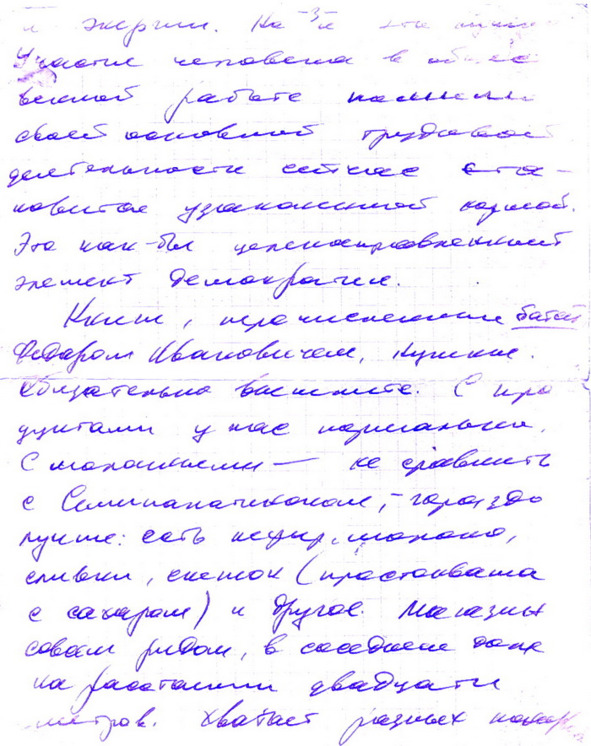 -3-
и энергии. На
Участие человека в общест
венной работе помимо
своей основной трудовой
деятельности сейчас ста-
новится узаконенной нормой.
Это как-бы целенаправленный
элемент демократии.
Книги, перечисленные батей
Федором Ивановичем, нужные.
Обязательно вышлите. С про
дуктами у нас нормально.
С молочными — не сравнить
с Семипалатинском, - гораздо
лучше: есть кефир, молоко,
сливки, снежок (простокваша
с сахаром) и другое. Магазин
совсем рядом, в соседнем доме
на расстоянии двадцати
метров. Хватает разных